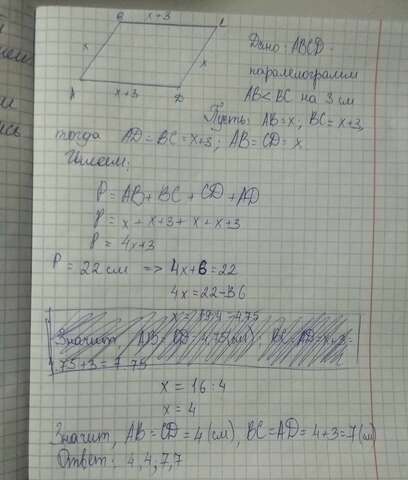 B x+3 C
x x
A x+3 D
Дано: ABCD -
паралелограмм
AB < BC на 3 см
Пусть: AB = x; BC = x+3,
тогда AD = BC = x+3; AB = CD = x.
Имеем:
P = AB + BC + CD + AD
P = x + x+3 + x + x+3
P = 4x+3
P = 22 см => 4x+6=22
4x = 22-6
x = 19:4=4,75
Значит, AB = CD = 4,75(см); BC = AD = x+3 =
4,75+3 = 7,75
x = 16 : 4
x = 4
Значит, AB = CD = 4 (см), BC = AD = 4+3 = 7 (см)
Ответ: 4, 4, 7, 7